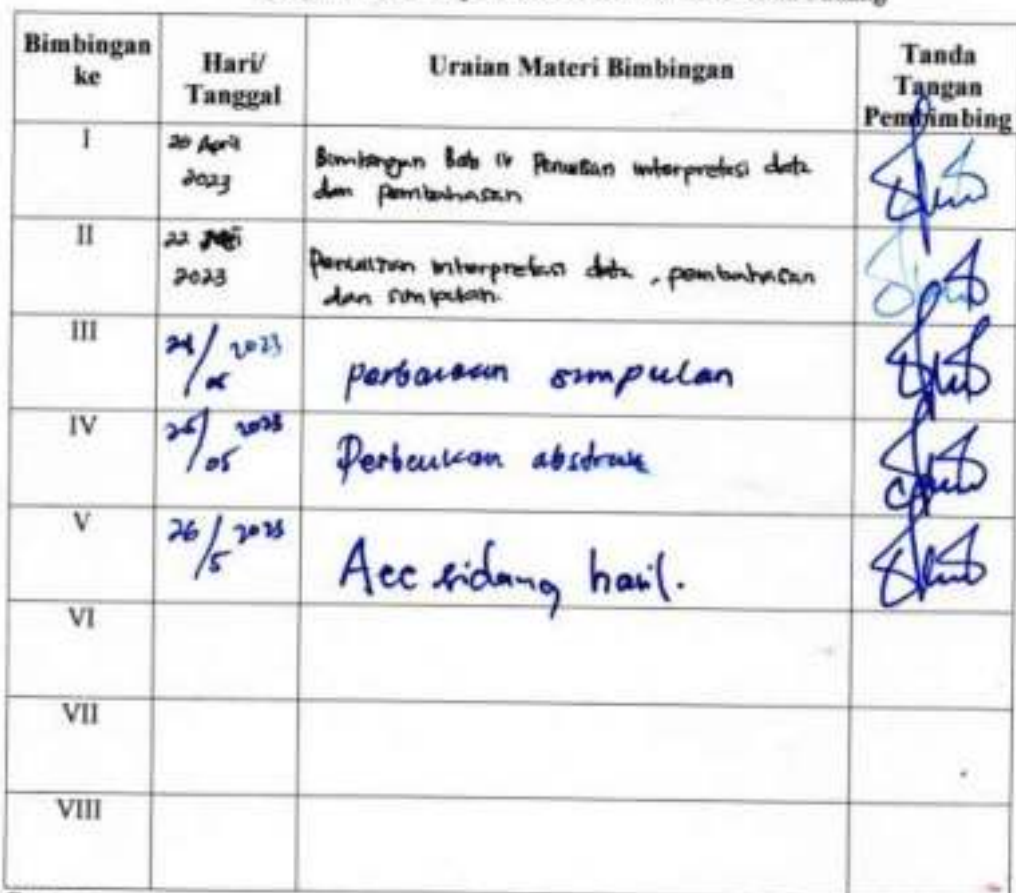 Bimbingan
ke
Hari/
Tanggal
Uraian Materi Bimbingan
Tanda
Tangan
Pembimbing
I
20 April
2023
Bimbingan Bab IV Penulisan interpretasi data
dan pembahasan
II
22
2023
Penulisan interpretasi data, pembahasan
dan simpulan.
III
2023
perbaikan simpulan
IV
2023
05
Perbaikan abstrak
V
26/5 2023
Acc sidang hasil.
VI
VII
VIII